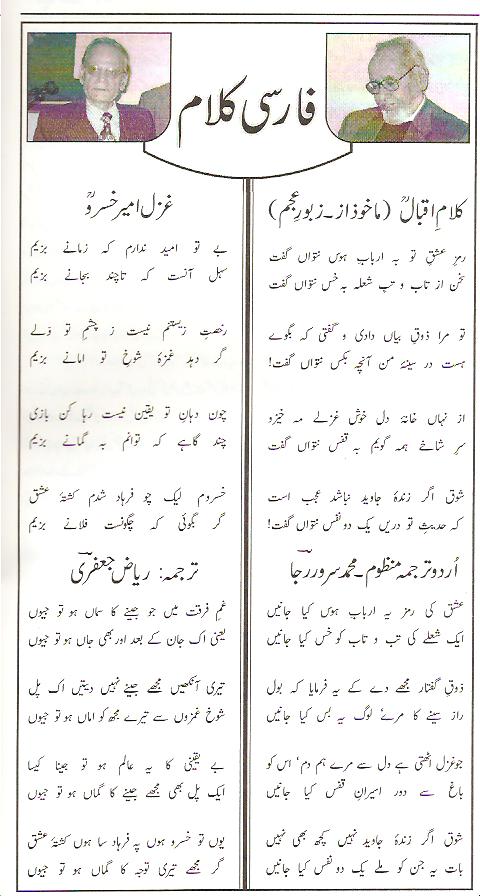 فارسی کلام
کلامِ اقبالؒ (ماخوذ از۔ زبورِ عجم)
رمزِ عشقِ تو بہ اربابِ ہوس نتواں گفت
سخن از تاب و تبِ شعلہ بہ خس نتواں گفت
تو مرا ذوقِ بیاں دادی و گفتی کہ بگوے
ہست در سینۂ من آنچہ بکس نتواں گفت!
از نہاں خانۂ دل خوش غزلے مہ خیزو
سرِ شاخے ہمہ گویم بہ قفس نتواں گفت
شوق اگر زندۂ جاوید نباشد عجب است
کہ حدیثِ تو دریں یک دو نفس نتواں گفت!
اُردو ترجمہ منظوم۔ محمد سرور رجاؔ
عشق کی رمز یہ اربابِ ہوس کیا جانیں
ایک شعلے کی تب و تاب کو خس کیا جانیں
ذوقِ گفتار مجھے دے کے یہ فرمایا کہ بول
راز سینے کا مرے لوگ یہ بس کیا جانیں
جو غزل اٹھتی ہے دل سے مرے ہم دم' اس کو
باغ سے دور اسیرانِ قفس کیا جانیں
شوق اگر زندۂ جاوید نہیں کچھ بھی نہیں
بات یہ جن کو ملے یک دو نفس کیا جانیں
غزل امیر خسروؒ
بے تو امید ندارم کہ زمانے بزیم
سہل آنست کہ تا چند بجانے بزیم
رخصتِ زیستنم نیست ز چشمِ تو ولے
گر دہد غمزۂ شوخِ تو امانے بزیم
چون دہانِ تو یقین نیست رہا کن بازی
چند گاہے کہ توانم بہ گمانے بزیم
خسروم لیک چو فرہاد شدم کشتۂ عشق
گر بگوئی کہ چگونست فلانے بزیم
ترجمہ: ریاض جعفریؔ
غمِ فرقت میں جو جینے کا سماں ہو تو جیوں
یعنی اک جان کے بعد اور بھی جاں ہو تو جیوں
تیری آنکھیں مجھے جینے نہیں دیتیں اک پل
شوخ غمزوں سے تیرے مجھ کو اماں ہو تو جیوں
بے یقینی کا یہ عالم ہو تو جینا کیسا
ایک پل بھی مجھے جینے کا گماں ہو تو جیوں
یوں تو خسرو ہوں پہ فرہاد سا ہوں کشتۂ عشق
گر مجھے تیری توجہ کا گماں ہو تو جیوں